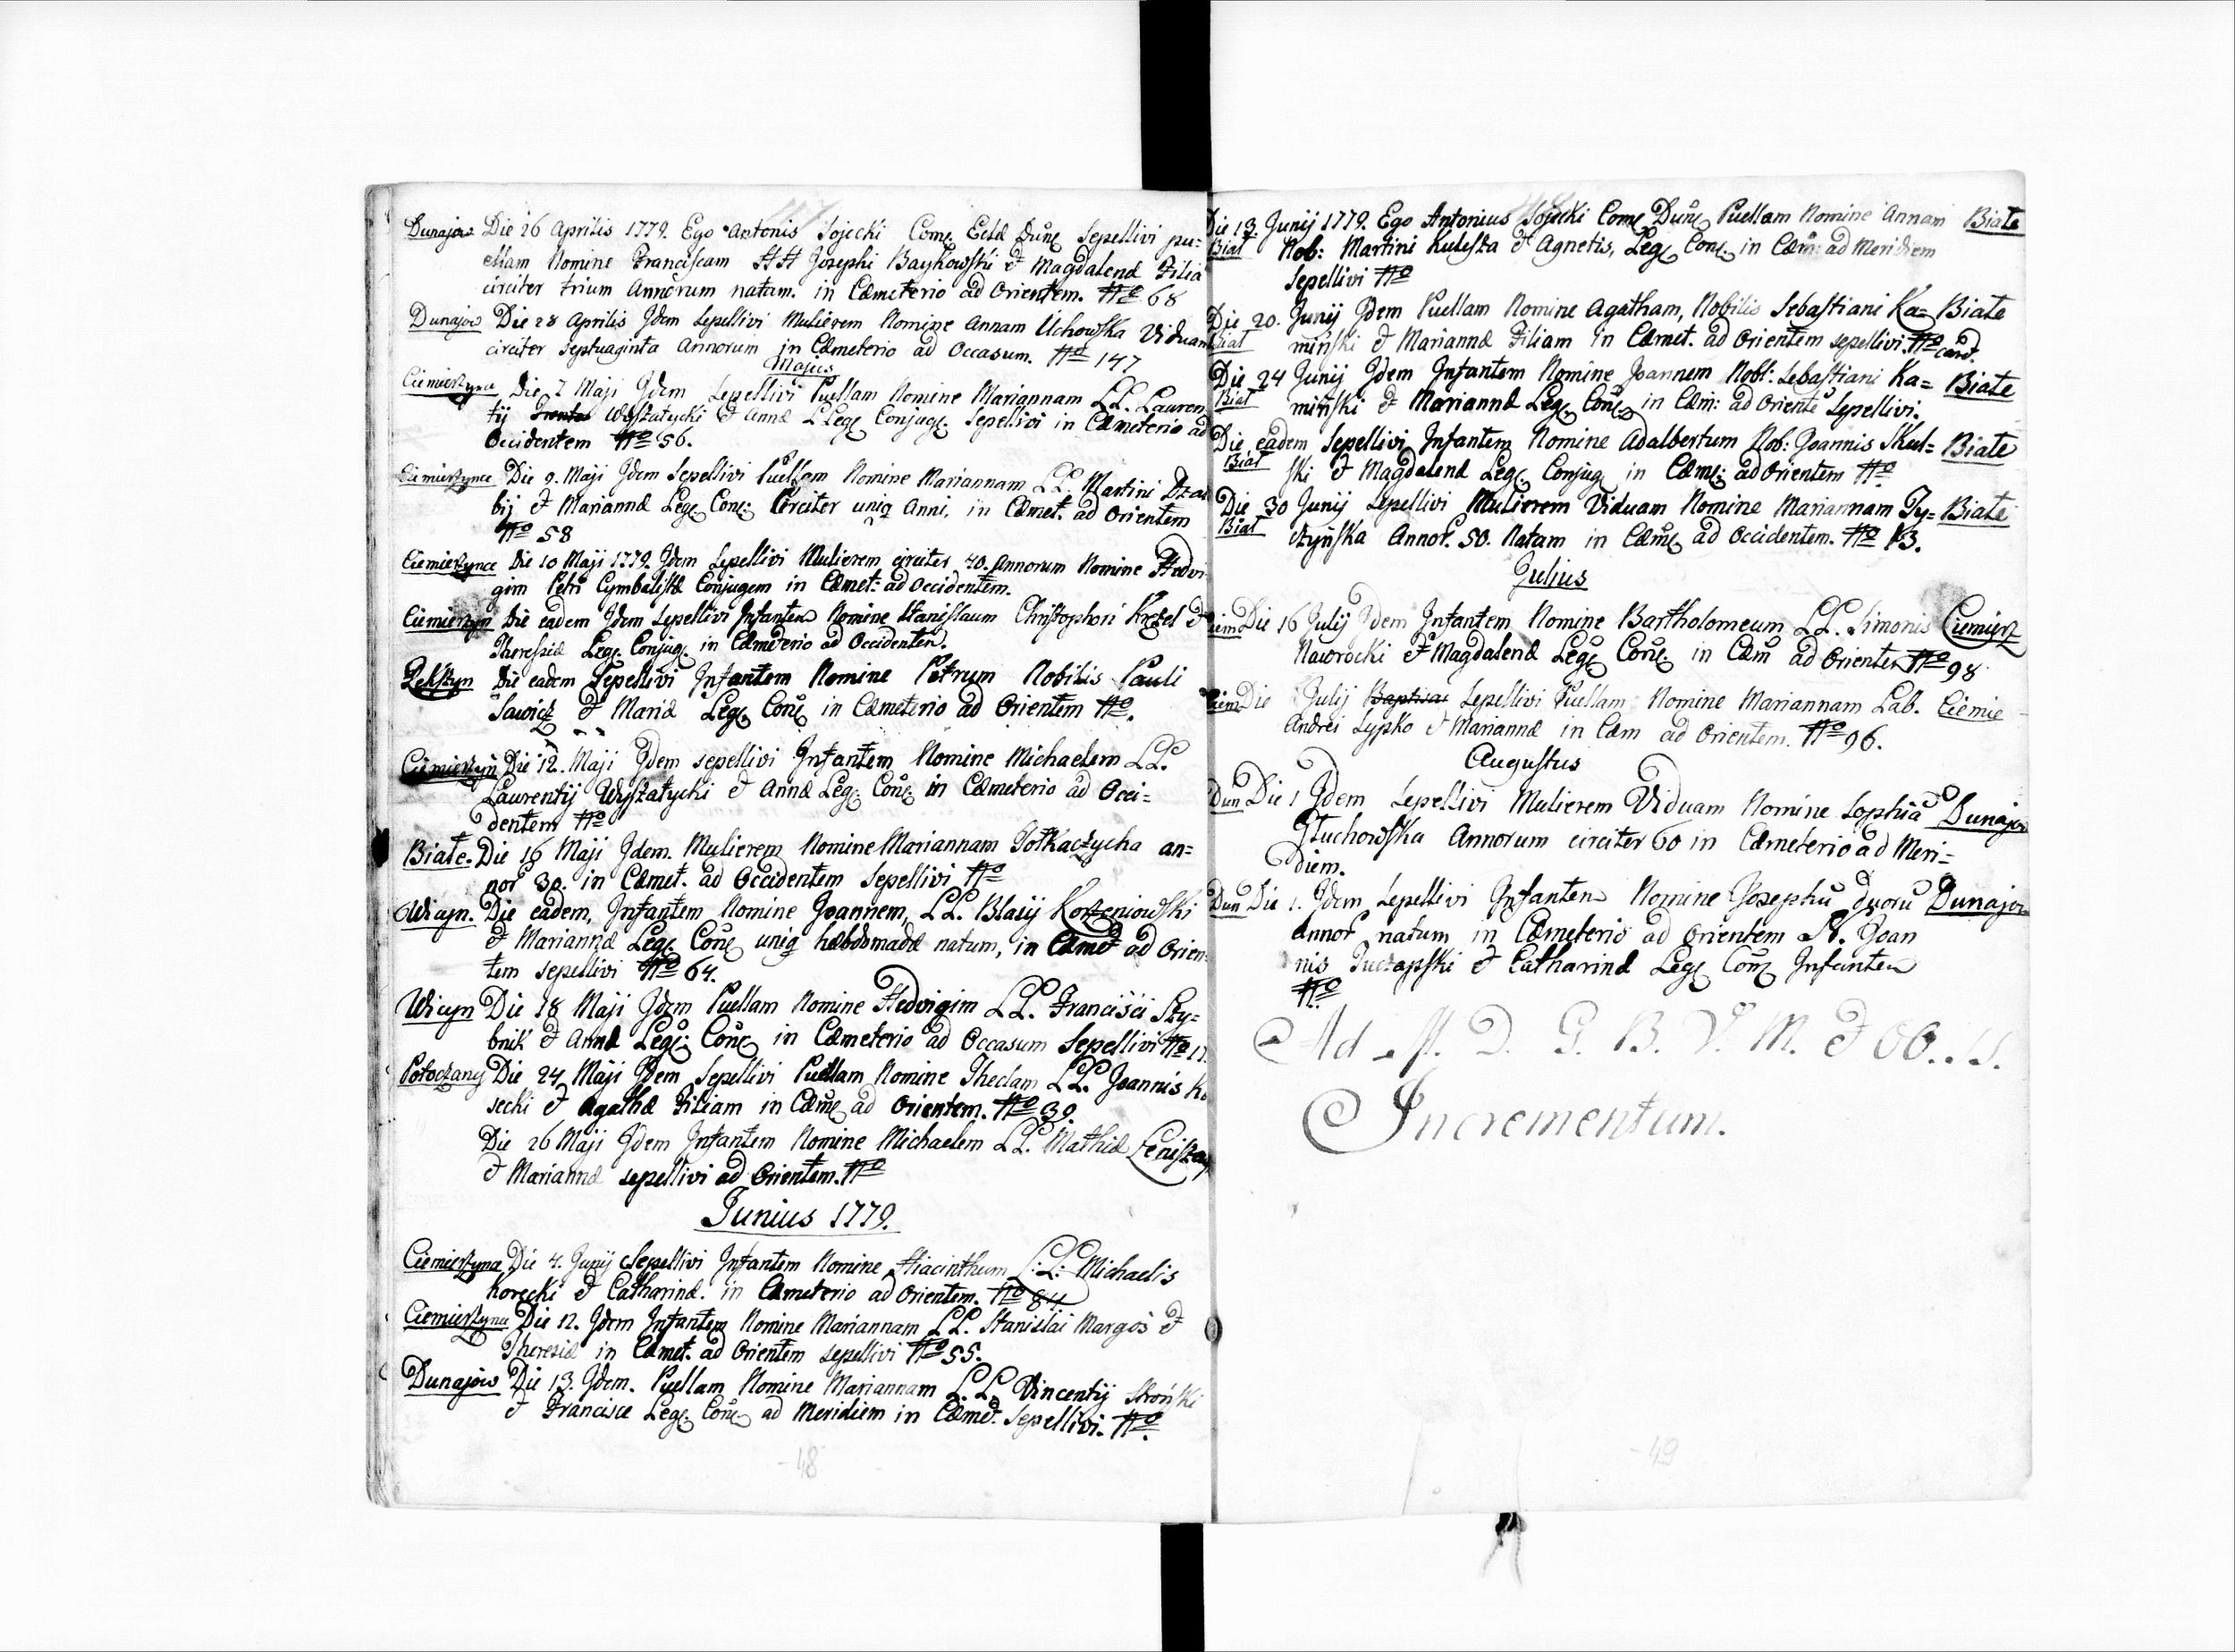 Dunajow Die 26 Aprilis 1779. Ego Antonis Sojecki Come Eclæ Dune Sepellivi pu=
ellam Nomine Franciscam HH Josephi Baykowski et Magdalenæ Filia
circiter trium Annorum natam. in Cæmeterio ad Orientem. No 68
Dunajow Die 28 Aprilis Idem Sepellivi Mulierem Nomine Annam Uchowska Viduam
circiter septuaginta Annorum in Cæmeterio ad Occasum. No 147
Majus
Ciemierzynce Die 7 Maji Idem Sepellivi Puellam Nomine Mariannam LL. Lauren
tij Wyszatycki et Annæ LLeg. Conjug. Sepellivi in Cæmeterio ad
Occidentem No 56.
Ciemierzynce Die 9. Maji Idem Sepellivi Puellam Nomine Mariannam LL. Martini
bij et Mariannæ Leg. Con: Circiter uniq Anni, in Cæmet. ad Orientem
No 58
Ciemierzynce Die 10 Maji 1779. Idem Sepellivi Mulierem circiter 40. Annorum Nomine Hedvi
gim Petri Cymbalistæ Conjugem in Cæmet: ad Occidentem.
Ciemierzyn Die eadem Idem Sepellivi Infantem Nomine Stanislaum Christophori Krzel et
Theresiæ Leg. Conjug. in Cæmeterio ad Occidentem.
Die eadem Sepellivi Infantem Nomine Petrum Nobilis Pauli
Sawicz et Mariæ Leg. Con. in Cæmeterio ad Orientem No.
Ciemierzyn Die 12. Maji Idem sepellivi Infantem Nomine Michaelem LL.
Laurentij Wyszatycki et Annæ Leg: Con: in Cæmeterio ad Occi=
dentem No
Białe. Die 16 Maji Idem. Mulierem Nomine Mariannam Totkaczycha an=
nor 30. in Cæmet. ad Occidentem Sepellivi No
Wicyn. Die eadem, Infantem Nomine Joannem, LL. Blasij Korzeniowski
et Mariannæ Leg. Con. uniq hæbdomadæ natum, in Cæmet ad Orien
tem sepellivi No 64.
Wicyn Die 18 Maji Idem Puellam Nomine Hedvigim LL. Francisci Szy=
bnik et Annæ Leg: Con. in Cæmeterio ad Occasum Sepellivi No 17.
Potoczany Die 24 Maji Idem Sepellivi Puellam Nomine Theclam LL. Joannis Ko
secki et Agathæ Filiam in Cæme ad Orientem. No 39.
Die 26 Maji Idem Infantem Nomine Michaelem LL. Mathiæ
et Mariannæ sepellivi ad Orientem. No
Junius 1779.
Ciemierzynce Die 4. Junij Sepellivi Infantem Nomine Hiacinthum L:L: Michaelis
Korecki et Catharinæ. in Cæmeterio ad Orientem. No 84
Ciemierzynce Die 12. Idem Infantem Nomine Mariannam LL. Stanislai Margos et
Theresiæ in Cæmet. ad Orientem sepellivi No 55.
Dunajow Die 13. Idem. Puellam Nomine Mariannam L.L. Vincentij Stroński
et Francisce Leg. Con. ad Meridiem in Cæmet. Sepellivi. No.
48
Die 13 Junij 1779. Ego Antonius Sojecki Come Dune Puellam Nomine Annam Białe
Biał Nob: Martini Kuleszka et Agnetis, Leg. Con. in Cæm: ad Meridiem
Sepellivi No
Die 20. Junij Idem Puellam Nomine Agatham, Nobilis Sebastiani Ka= Białe
Biał miński et Mariannæ Filiam in Cæmet. ad Orientem sepellivi. No
Die 24 Junij Idem Infantem Nomine Joannem Nobl: Sebastiani Ka= Białe
Biał miński et Mariannæ Leg. Con. in Cæm: ad Oriente Sepellivi.
Die eadem Sepellivi Infantem Nomine Adalbertum Nob: Joannis Skul= Białe
Biał ski et Magdalenæ Leg. Conjug in Cæme: ad Orientem No
Die 30 Junij Sepellivi Mulierem Viduam Nomine Mariannam Ty= Białe
Biał czyńska Annor. 50. Natam in Cæme ad Occidentem. No 13.
Julius
Ciem. Die 16 Julij Idem Infantem Nomine Bartholomeum LL. Simonis Ciemierz
Nawrocki et Magdalenæ Leg. Con. in Cæm ad Orientem No 98
Ciem Die Julij Baptisa Sepellivi Puellam Nomine Mariannam Lab. Ciemie
Andrei Lypko et Mariannæ in Cæm ad Orientem. No 96.
Augustus
Dun Die 1 Idem Sepellivi Mulierem Viduam Nomine Sophia Dunajow
Głuchowska Annorum circiter 60 in Cæmeterio ad Meri=
diem.
Dun Die 1. Idem Sepellivi Infantem Nomine Josephu duoru Dunajow
Annor natum in Cæmeterio ad Orientem Joan
nis et Catharinæ Leg. Con. Infantem
No
Ad M. D. G. B. V. M. et OO. S.
Incrementum.
49